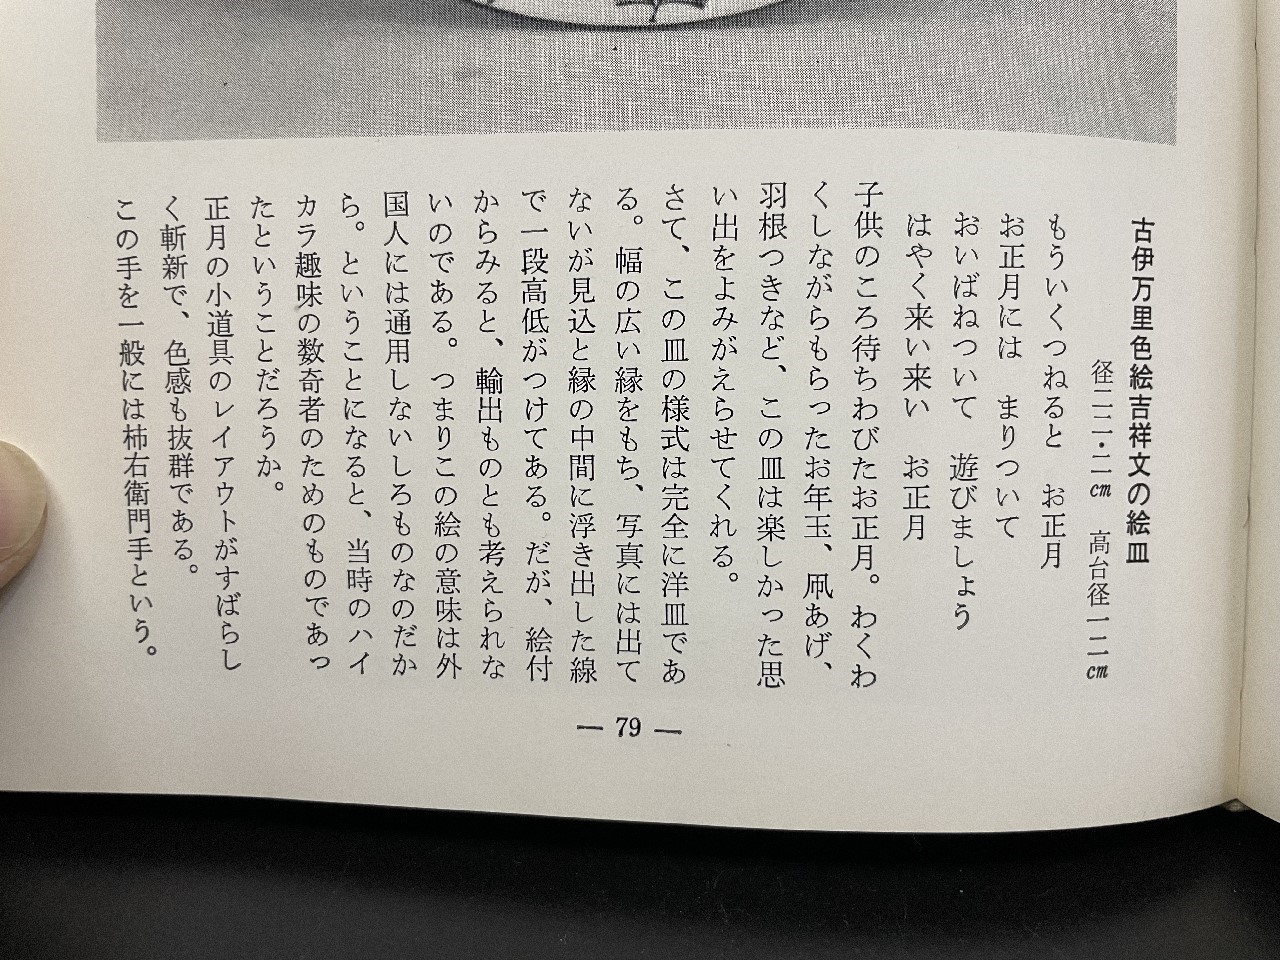 古伊万里色絵吉祥文の絵皿
径二二・二cm　高台径一二cm
もういくつねると　お正月
お正月には　まりついて
おいばねついて　遊びましょう
はやく来い来い　お正月
子供のころ待ちわびたお正月。わくわ
くしながらもらったお年玉、凧あげ、
羽根つきなど、この皿は楽しかった思
い出をよみがえらせてくれる。
さて、この皿の様式は完全に洋皿であ
る。幅の広い縁をもち、写真には出て
ないが見込と縁の中間に浮き出した線
で一段高低がつけてある。だが、絵付
からみると、輸出ものとも考えられな
いのである。つまりこの絵の意味は外
国人には通用しないしろものなのだか
ら。ということになると、当時のハイ
カラ趣味の数奇者のためのものであっ
たということだろうか。
正月の小道具のレイアウトがすばらし
く斬新で、色感も抜群である。
この手を一般には柿右衛門手という。
— 79 —